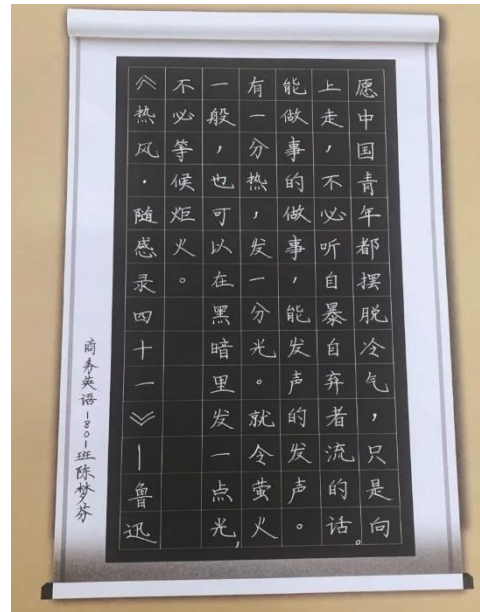 愿中国青年都摆脱冷气，只是向
上走，不必听自暴自弃者流的话。
能做事的做事，能发声的发声。
有一分热，发一分光。就令萤火
一般，也可以在黑暗里发一点光，
不必等候炬火。
《热风·随感录四十一》—鲁迅
商务英语1801班陈梦芬